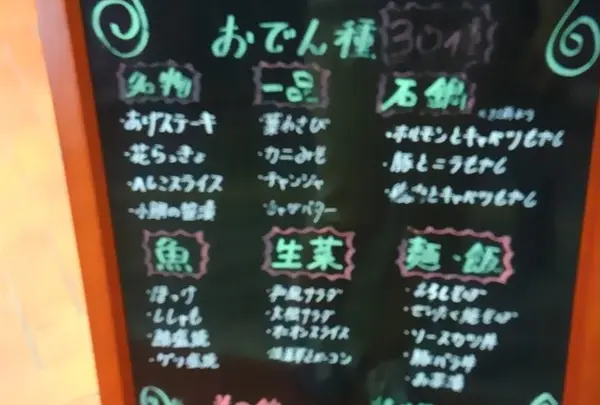 おでん種 30種
名物
・あげステーキ
・花らっきょ
・ハムこスライス
・小鯛の笹漬
一品
・葉わさび
・カニみそ
・チャンジャ
・ジャガバター
石鍋
・ホルモンとキャベツもやし
・豚とニラもやし
・とキャベツもやし
魚
・ほっけ
・ししゃも
・塩焼
・ゲソ塩焼
生菜
・和風サラダ
・大根サラダ
・オニオンスライス
・ベーコン
麺・飯
・おろしそば
・ぜいたく焼そば
・ソースカツ丼
・豚バラ丼
・お茶漬